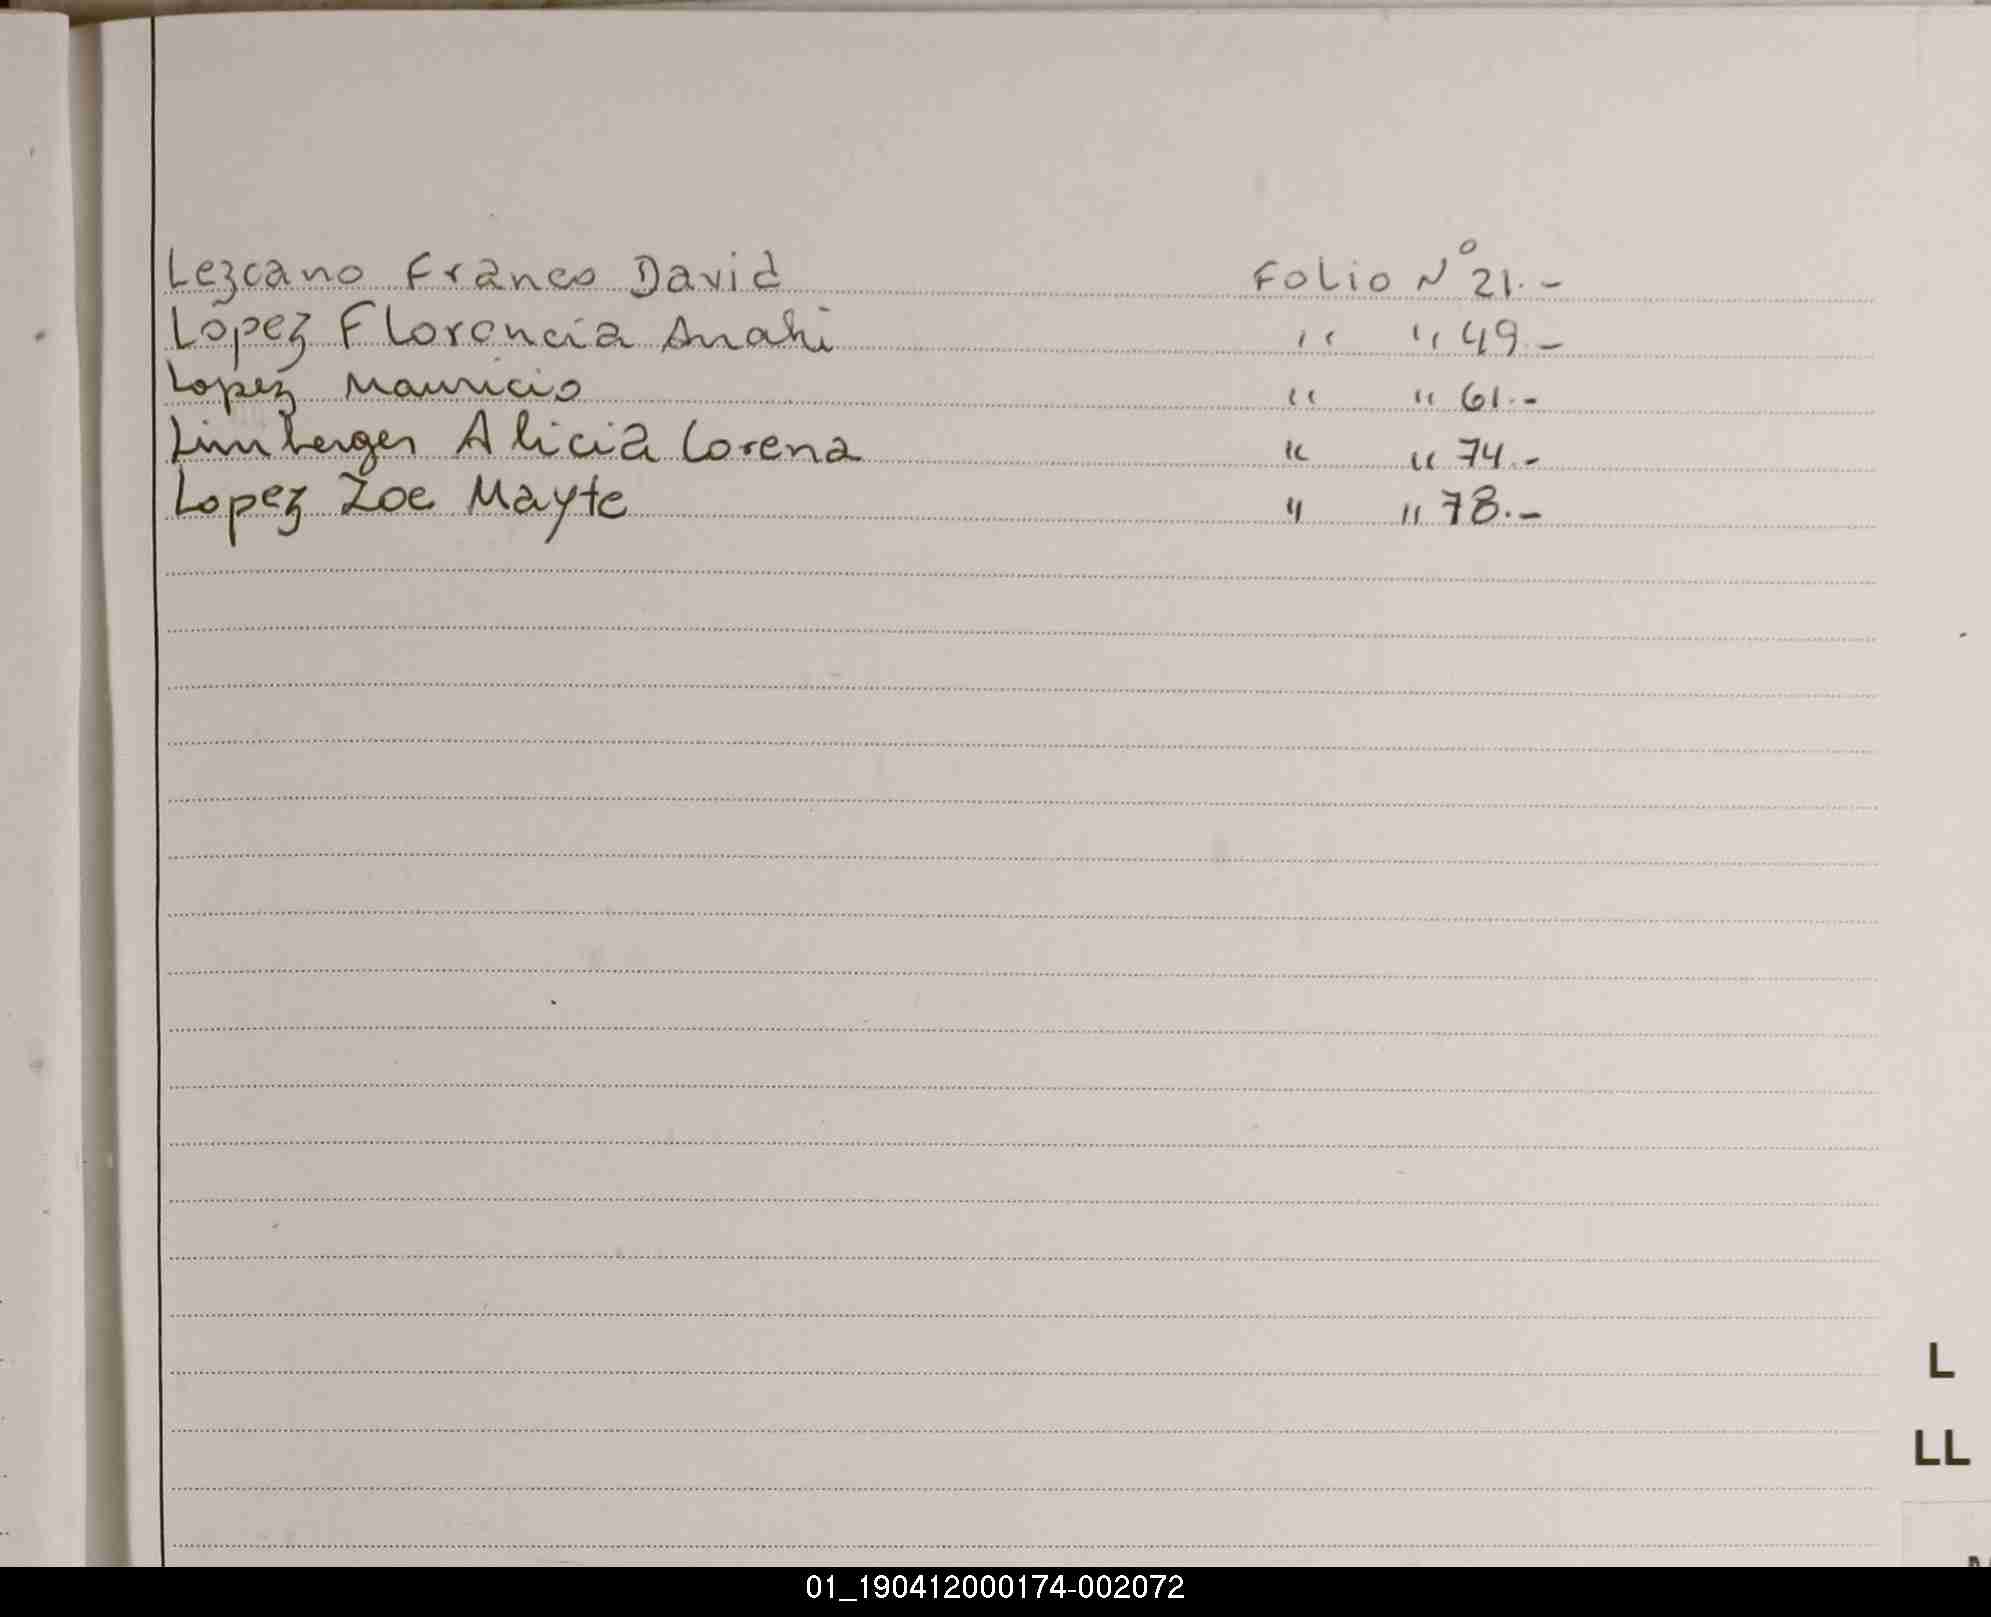 Lezcano Franco David Folio Nº 21.-
Lopez Florencia Anahi " " 49.-
Lopez Mauricio " " 61.-
Limberger Alicia Lorena " " 74.-
Lopez Zoe Mayte " " 78.-
L
LL
01_190412000174-002072